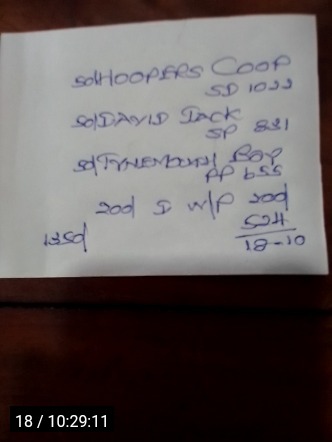 50/HOOPERS COOP
SP 1022
50/DAVID JACK
SP 831
50/TYNEMOUTH BAY
PP 655
200/ I W/P 200/
524
135d 18-10
18 / 10:29:11